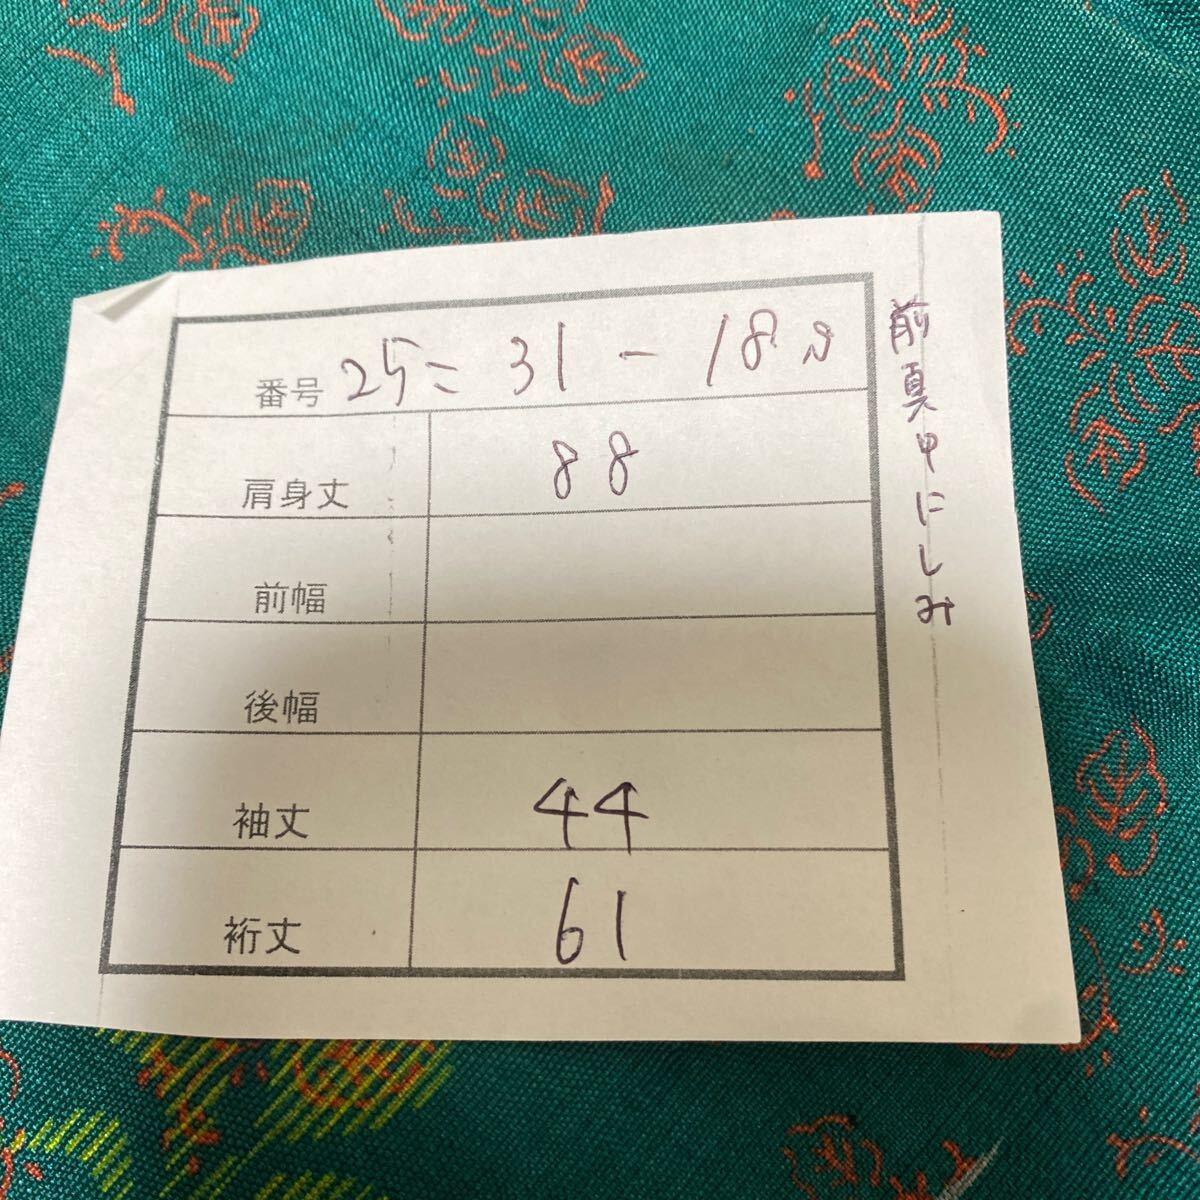 番号 25ニ 31 - 18
肩身丈 88
前幅
後幅
袖丈 44
裄丈 61
前真中にしみ